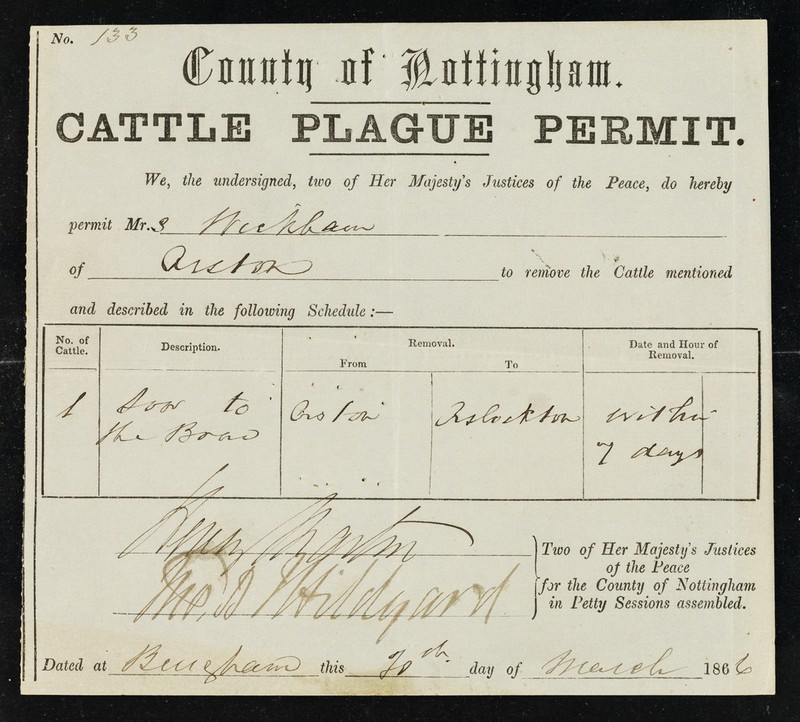 No. 133
County of Nottingham.
CATTLE PLAGUE PERMIT.
We, the undersigned, two of Her Majesty's Justices of the Peace, do hereby
permit Mr.s Wickham
of Orston to remove the Cattle mentioned
and described in the following Schedule :—
No. of Cattle. Description. Removal. Date and Hour of Removal.
From To
1 Sow to Orston Aslockton within
the Boar 7 days
Henry Martin
Two of Her Majesty's Justices
of the Peace
Thos. B T Hildyard for the County of Nottingham
in Petty Sessions assembled.
Dated at Bingham this 20th day of March 1866